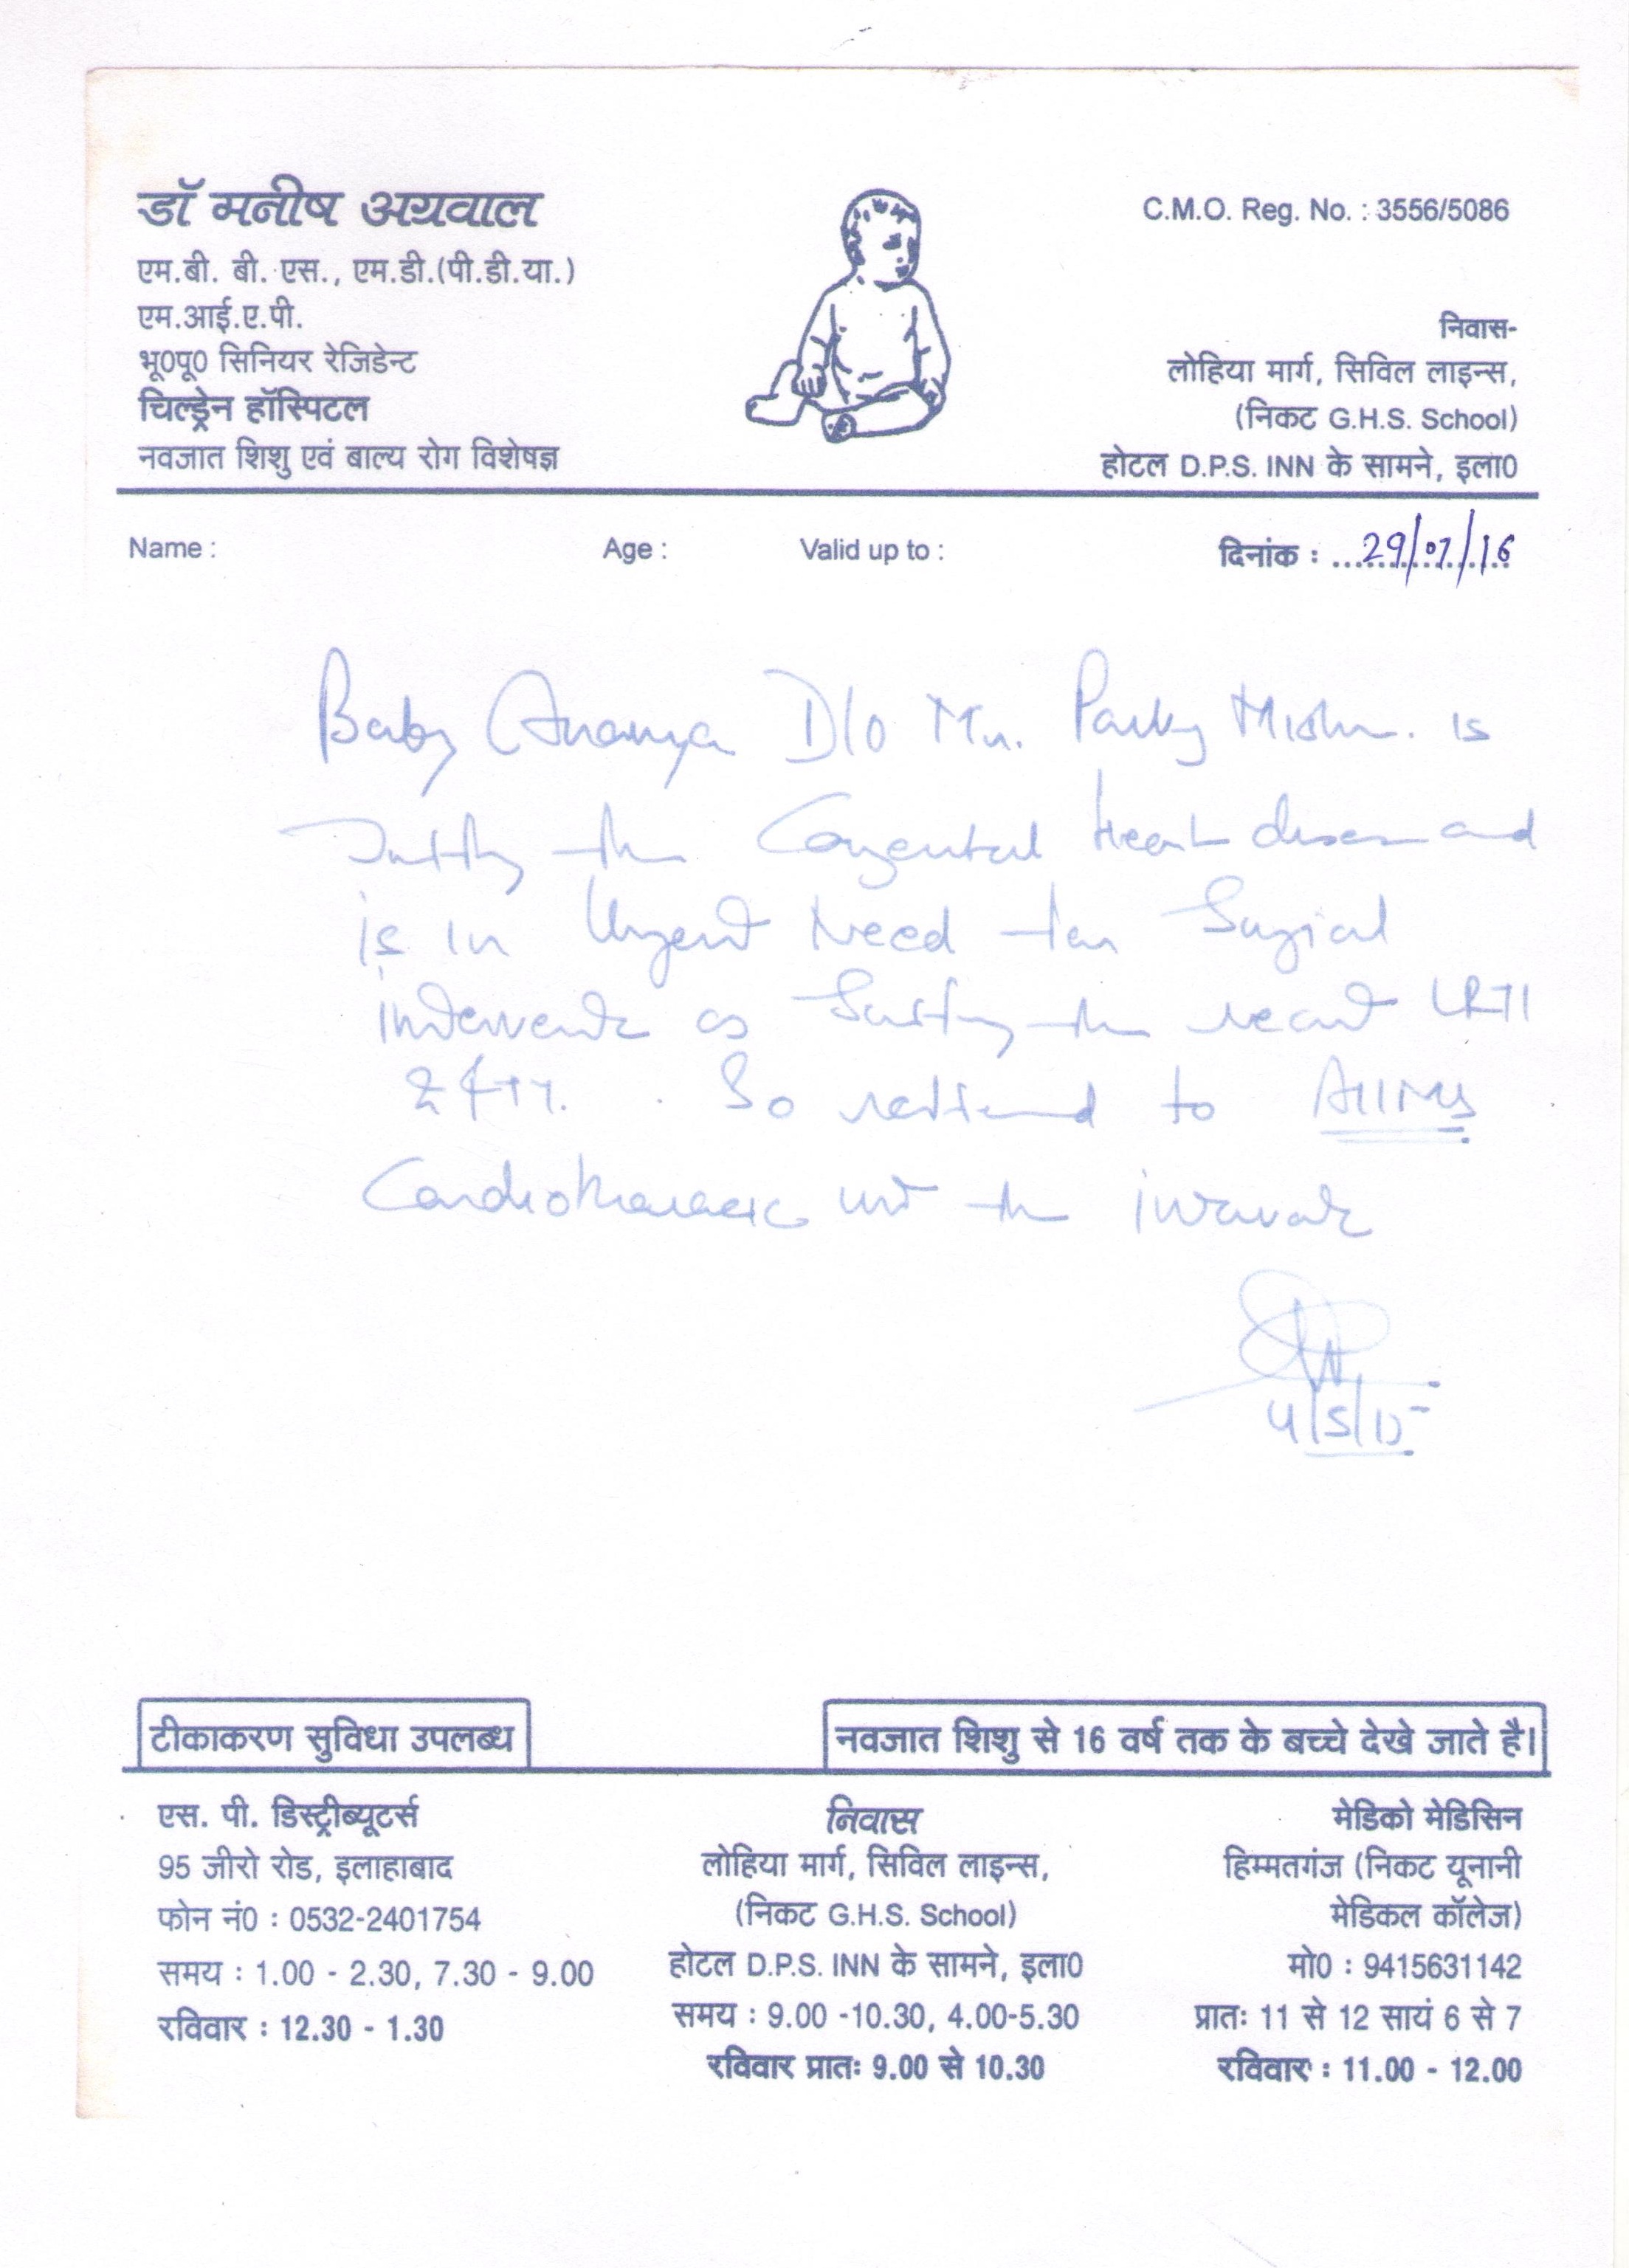 डॉ मनीष अग्रवाल
एम.बी. बी. एस., एम.डी.(पी.डी.या.)
एम.आई.ए.पी.
भू0पू0 सिनियर रेजिडेन्ट
चिल्ड्रेन हॉस्पिटल
नवजात शिशु एवं बाल्य रोग विशेषज्ञ
C.M.O. Reg. No. : 3556/5086
निवास-
लोहिया मार्ग, सिविल लाइन्स,
(निकट G.H.S. School)
होटल D.P.S. INN के सामने, इला0
Name : Age : Valid up to : दिनांक : 29/07/16
Baby Ananya D/o Mr. is
Heart and
is in Urgent Need
as LRTI
So to AIIMS
Cardiothoracic
टीकाकरण सुविधा उपलब्ध
नवजात शिशु से 16 वर्ष तक के बच्चे देखे जाते है।
एस. पी. डिस्ट्रीब्यूटर्स
95 जीरो रोड, इलाहाबाद
फोन नं0 : 0532-2401754
समय : 1.00 - 2.30, 7.30 - 9.00
रविवार : 12.30 - 1.30
निवास
लोहिया मार्ग, सिविल लाइन्स,
(निकट G.H.S. School)
होटल D.P.S. INN के सामने, इला0
समय : 9.00 -10.30, 4.00-5.30
रविवार प्रातः 9.00 से 10.30
मेडिको मेडिसिन
हिम्मतगंज (निकट यूनानी
मेडिकल कॉलेज)
मो0 : 9415631142
प्रातः 11 से 12 सायं 6 से 7
रविवार : 11.00 - 12.00